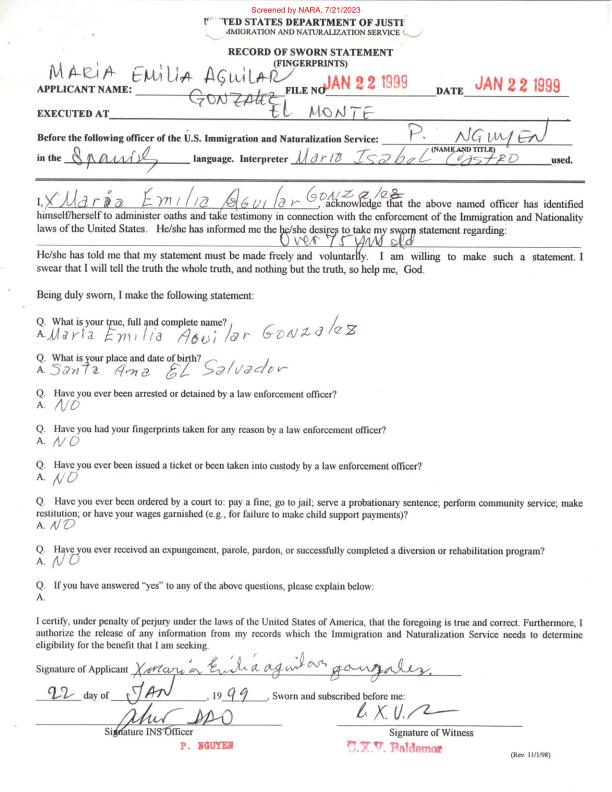 Screened by NARA, 7/21/2023
TED STATES DEPARTMENT OF JUSTI
MIGRATION AND NATURALIZATION SERVICE
RECORD OF SWORN STATEMENT
(FINGERPRINTS)
MARIA EMILIA AGUILAR
APPLICANT NAME: GONZALEZ FILE NO JAN 22 1999 DATE JAN 22 1999
EXECUTED AT EL MONTE
Before the following officer of the U.S. Immigration and Naturalization Service: P. NGUYEN
(NAME AND TITLE)
in the Spanish language. Interpreter Maria Isabel CASTRO used.
I, X Maria Emilia Aguilar GONZalez, acknowledge that the above named officer has identified
himself/herself to administer oaths and take testimony in connection with the enforcement of the Immigration and Nationality
laws of the United States. He/she has informed me the he/she desires to take my sworn statement regarding:
Over 75 years old
He/she has told me that my statement must be made freely and voluntarily. I am willing to make such a statement. I
swear that I will tell the truth the whole truth, and nothing but the truth, so help me, God.
Being duly sworn, I make the following statement:
Q. What is your true, full and complete name?
A. Maria Emilia Aguilar GONZalez
Q. What is your place and date of birth?
A. Santa Ana EL Salvador
Q. Have you ever been arrested or detained by a law enforcement officer?
A. NO
Q. Have you had your fingerprints taken for any reason by a law enforcement officer?
A. NO
Q. Have you ever been issued a ticket or been taken into custody by a law enforcement officer?
A. NO
Q. Have you ever been ordered by a court to: pay a fine; go to jail; serve a probationary sentence; perform community service; make
restitution; or have your wages garnished (e.g., for failure to make child support payments)?
A. NO
Q. Have you ever received an expungement, parole, pardon, or successfully completed a diversion or rehabilitation program?
A. NO
Q. If you have answered “yes” to any of the above questions, please explain below:
A.
I certify, under penalty of perjury under the laws of the United States of America, that the foregoing is true and correct. Furthermore, I
authorize the release of any information from my records which the Immigration and Naturalization Service needs to determine
eligibility for the benefit that I am seeking.
Signature of Applicant X maria Emilia aguilar gonzalez.
22 day of JAN, 1999, Sworn and subscribed before me:
DAO
Signature INS Officer Signature of Witness
P. NGUYEN C.X.V. Baldemor
(Rev. 11/1/98)